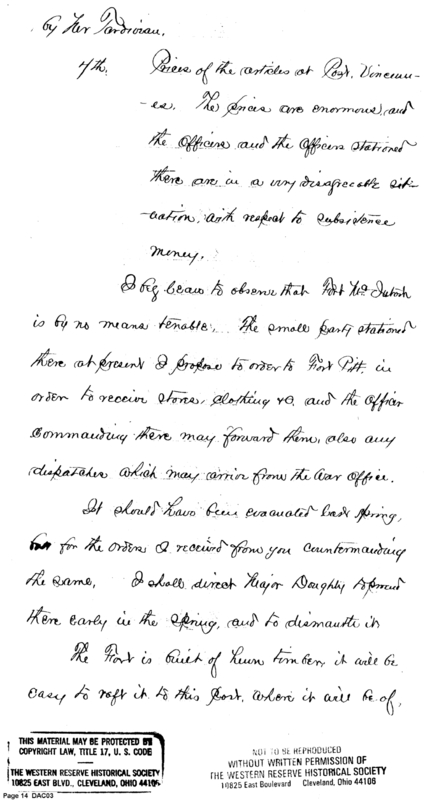 by Her Tardivian.
4th. Prices of the articles at Post. Vincenn-
-es. The prices are enormous, and
the Officers and the Officers stationed
there are in a very disagreeable sit-
-uation, with respect to subsistence
money.
I beg leave to observe that Fort McIntosh
is by no means tenable, The small party stationed
there at present I propose to order to Fort Pitt. in
order to receive stores, clothing &c. and the Officer
Commanding there may forward them, also any
dispatches which may arrive from the War Office.
It should have been evacuated last spring,
for the orders I received from you countermanding
the same. I shall direct Major Doughty to proceed
there early in the Spring, and to dismantle it
The Fort is built of hewn timber, it will be
easy to raft it to this Post, where it will be of,
THIS MATERIAL MAY BE PROTECTED BY
COPYRIGHT LAW, TITLE 17, U. S. CODE
THE WESTERN RESERVE HISTORICAL SOCIETY
10825 EAST BLVD., CLEVELAND, OHIO 44106
NOT TO BE REPRODUCED
WITHOUT WRITTEN PERMISSION OF
THE WESTERN RESERVE HISTORICAL SOCIETY
10825 East Boulevard Cleveland, Ohio 44106
Page 14 DAC03